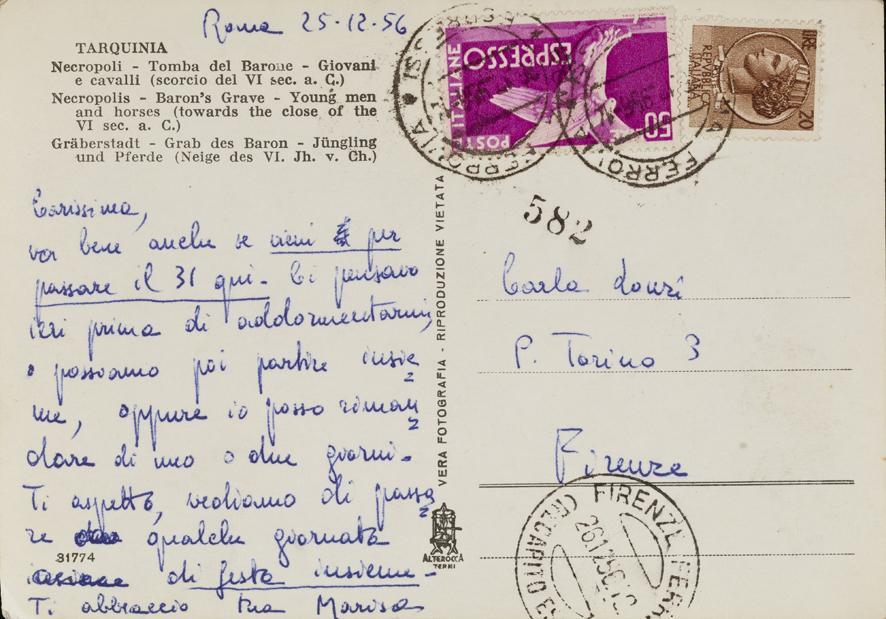 Roma 25-12-56
TARQUINIA
Necropoli - Tomba del Barone - Giovani
e cavalli (scorcio del VI sec. a. C.)
Necropolis - Baron's Grave - Young men
and horses (towards the close of the
VI sec. a. C.)
Gräberstadt - Grab des Baron - Jüngling
und Pferde (Neige des VI. Jh. v. Ch.)
Carissima,
va bene anche se vieni per
passare il 31 qui - Ci pensavo
ieri prima di addormentarmi,
o possiamo poi partire insie
me, oppure io posso riman
dare di uno o due giorni -
Ti aspetto, vediamo di passa
re qualche giornata
di festa insieme -
Ti abbraccio tua Marisa
31774
VERA FOTOGRAFIA - RIPRODUZIONE VIETATA
ALTEROCCA
TERNI
POSTE ITALIANE
ESPRESSO
50
LIRE 20
REPVBBLICA
ITALIANA
582
Carla Lonzi
P. Torino 3
Firenze
FIRENZE FERR